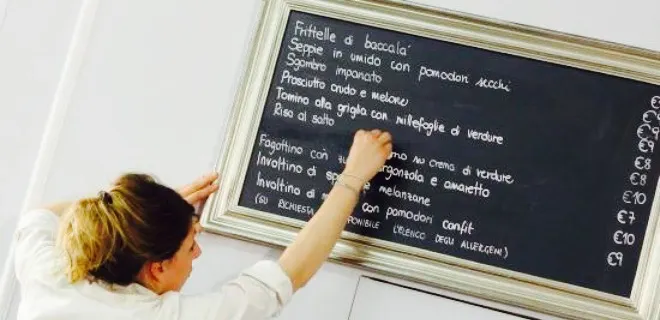 Frittelle di baccalà
Seppie in umido con pomodori secchi
Sgombro impanato
Prosciutto crudo e melone
Tomino alla griglia con millefoglie di verdure
Riso al salto
Fagottino con su crema di verdure
Involtino di e amaretto
Involtino di melanzane
con pomodori confit
(SU RICHIESTA DISPONIBILE L'ELENCO DEGLI ALLERGENI)
€
€
€9
€9
€8
€8
€10
€7
€10
€9